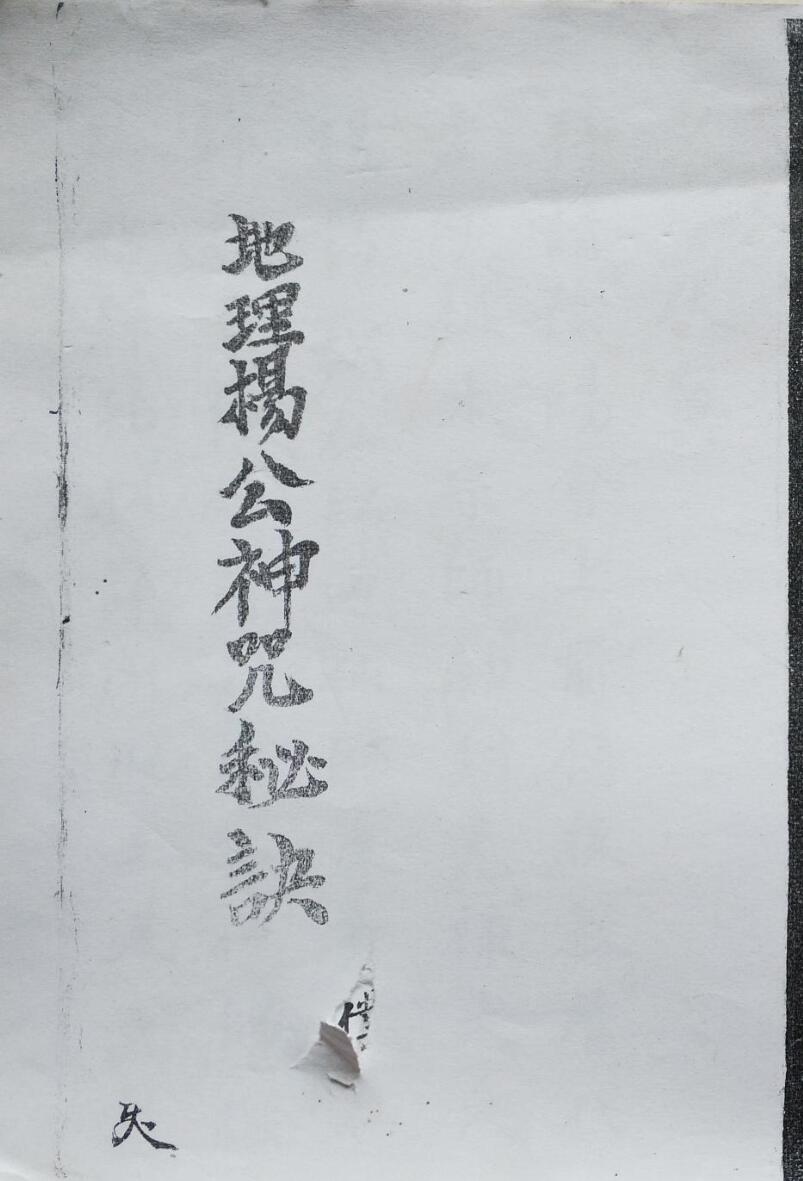 地理楊公神咒秘訣